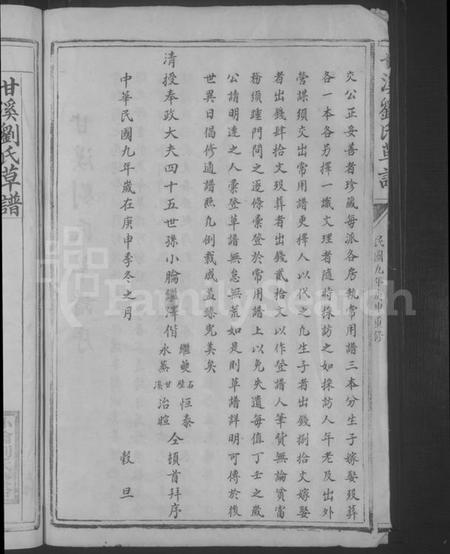 甘溪劉氏草譜
民國九年庚申重修
交公正妥善者珍藏每派各房執常用譜三本分生子嫁娶歿葬
各一本各另擇一識文理者隨時採訪之如採訪人年老及出外
營謀須交出常用譜更擇人以代之凡生子者出錢捌拾文嫁娶
者出錢肆拾文歿葬者出錢貳拾文以作登譜人筆貲無論貧富
務須踵門問之逐條彙登於常用譜上以免失遺每值丁壬之歲
公請明達之人彙登草譜無怠無荒如是則草譜詳明可傳於後
世異日倡修通譜照凡例裁成盡臻完美矣
清授奉政大夫四十五世孫小腀繼澤偕
繼夔 石壁 恒泰
永蒸 甘溪 治暄 仝頓首拜序
中華民國九年歲在庚申季冬之月 穀旦
甘溪劉氏草譜
FamilySearch